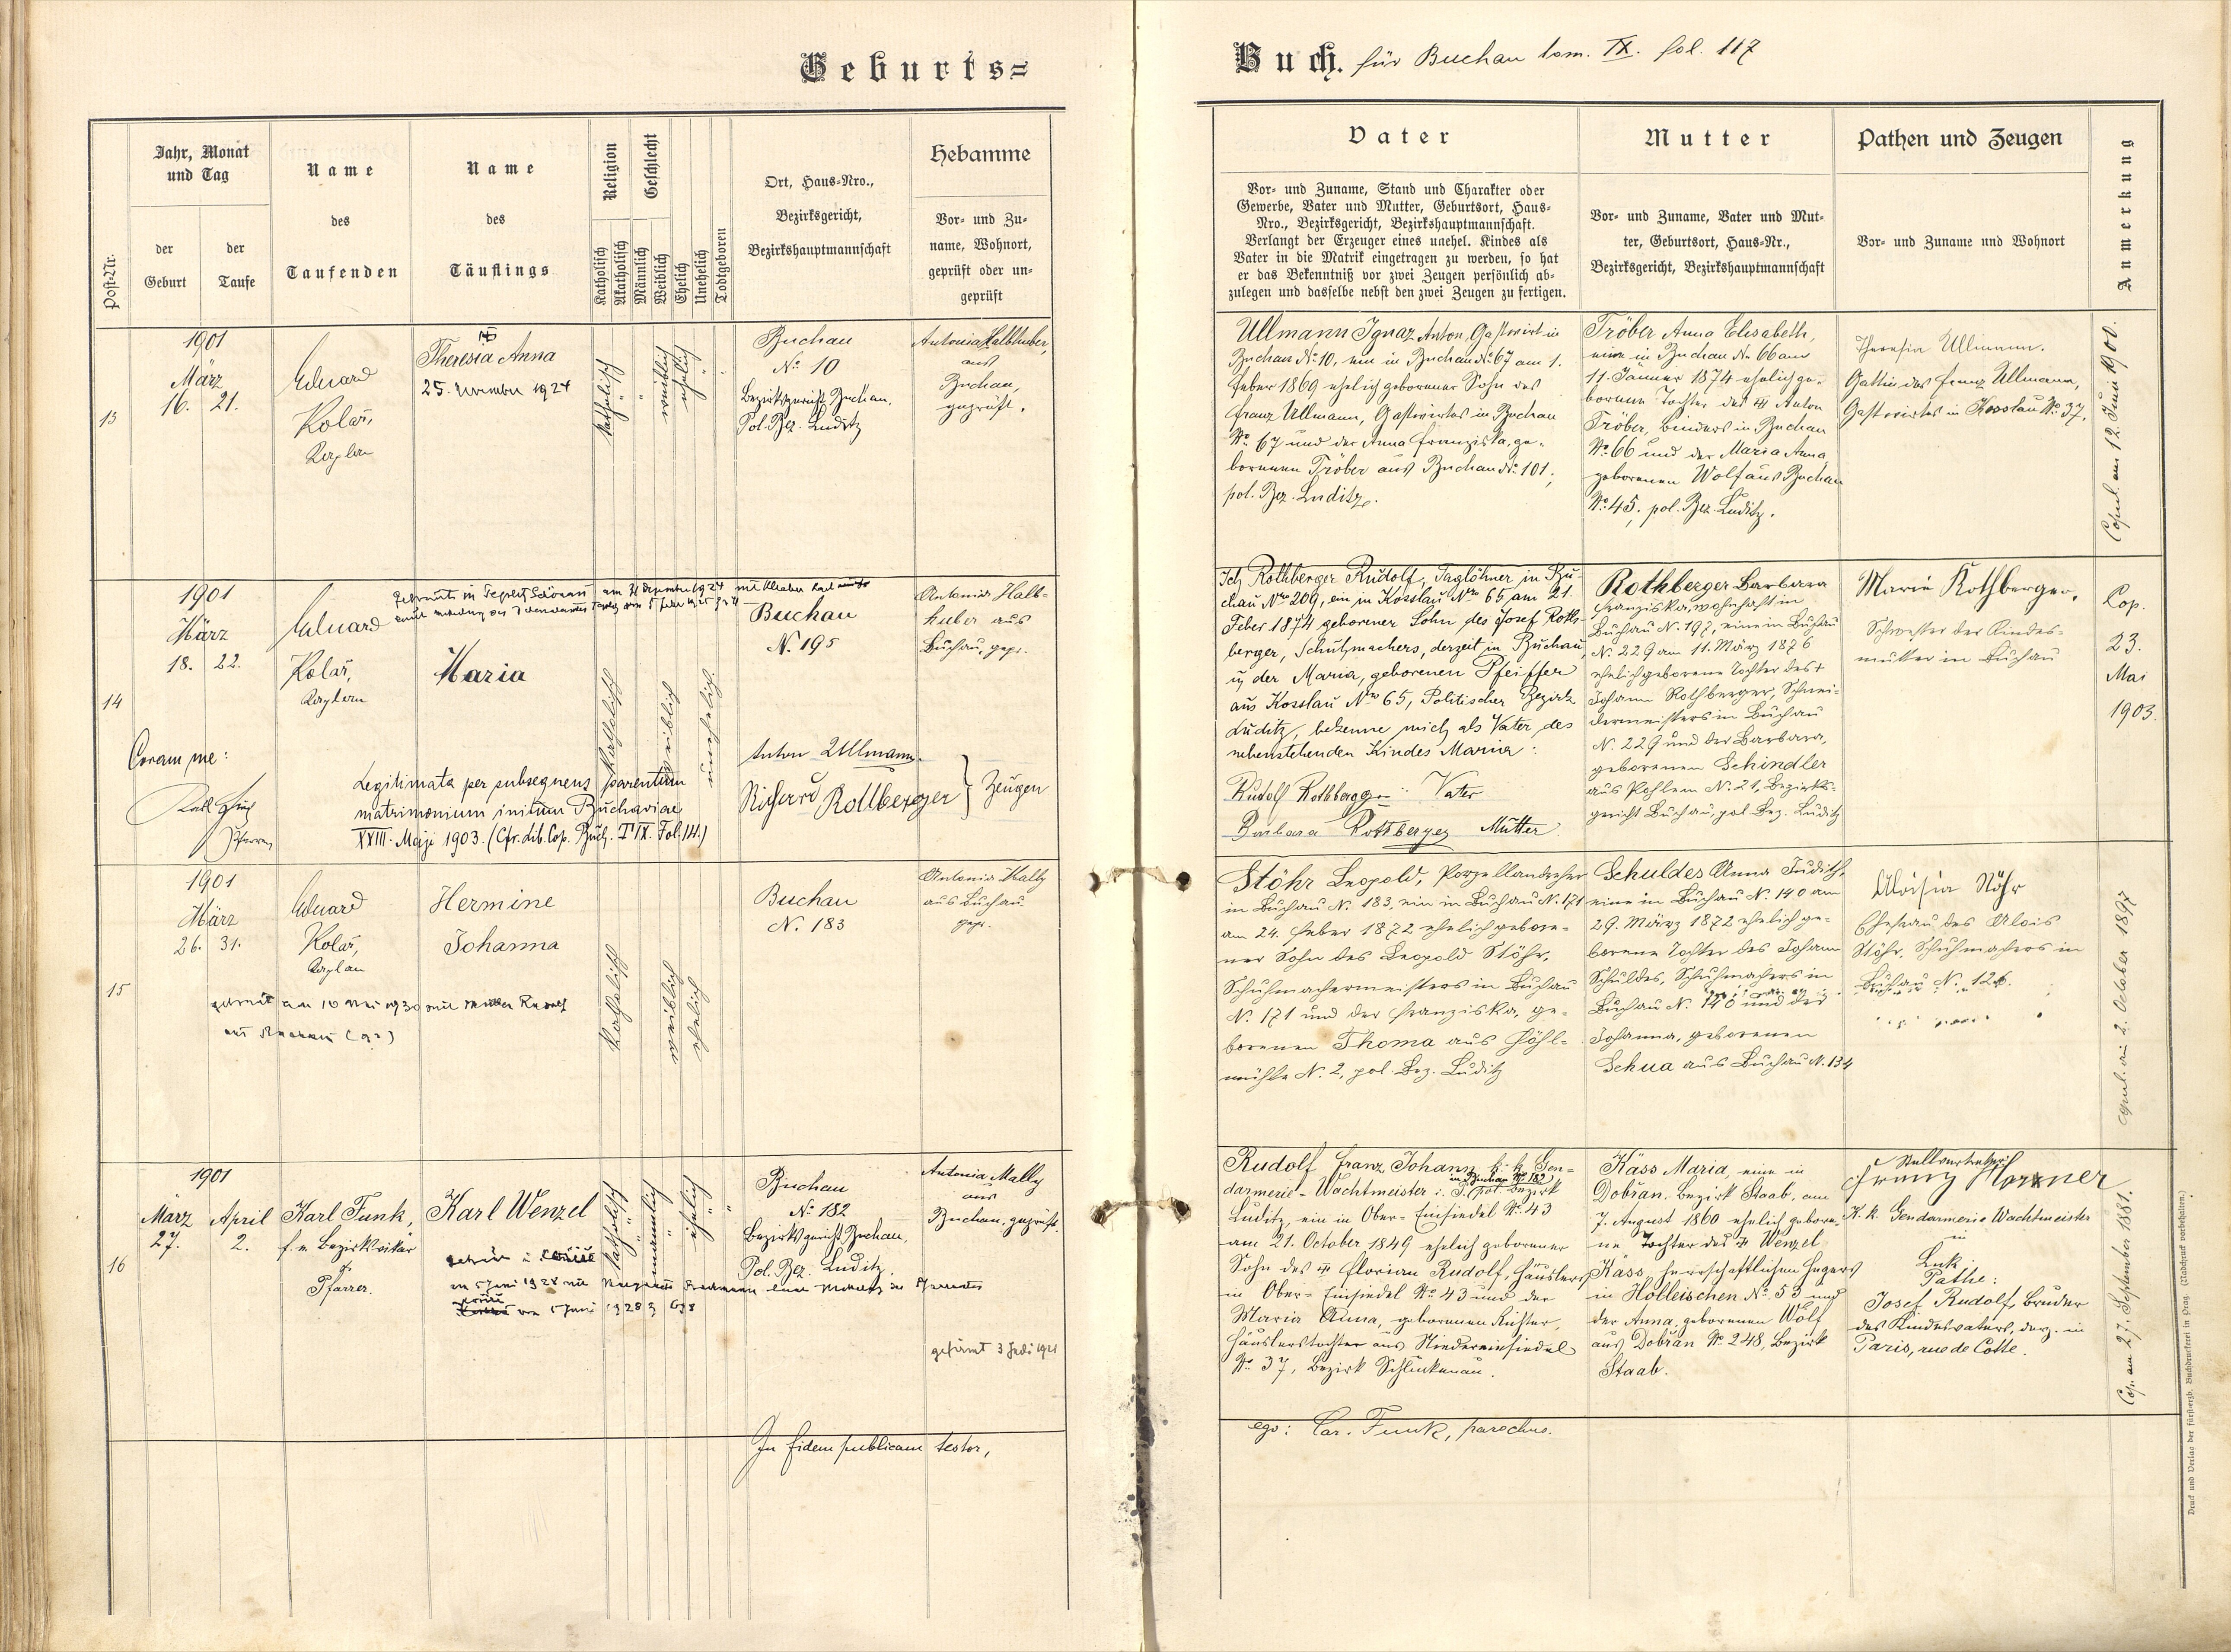 Geburts=
Buch. für Buchau tom. IX. fol. 117
Post-Nr.
Jahr, Monat
und Tag
der
Geburt
der
Taufe
Name
des
Taufenden
Name
des
Täuflings
Religion
Katholisch
Akatholisch
Geschlecht
Männlich
Weiblich
Ehelich
Unehelich
Todtgeboren
Ort, Haus-Nro.,
Bezirksgericht,
Bezirkshauptmannschaft
Hebamme
Vor- und Zu-
name, Wohnort,
geprüft oder un-
geprüft
Vater
Vor- und Zuname, Stand und Charakter oder
Gewerbe, Vater und Mutter, Geburtsort, Haus-
Nro., Bezirksgericht, Bezirkshauptmannschaft.
Verlangt der Erzeuger eines unehel. Kindes als
Vater in die Matrik eingetragen zu werden, so hat
er das Bekenntniß vor zwei Zeugen persönlich ab-
zulegen und dasselbe nebst den zwei Zeugen zu fertigen.
Mutter
Vor- und Zuname, Vater und Mut-
ter, Geburtsort, Haus-Nr.,
Bezirksgericht, Bezirkshauptmannschaft
Pathen und Zeugen
Vor- und Zuname und Wohnort
Anmerkung
13
1901
März
16. 21.
Eduard
Kolář,
Kaplan
Theresia Anna
25. November 1924
katholisch
weiblich
ehelich
Buchau
No. 10
Bezirksgericht Buchau,
Pol. Bez. Luditz
Antonia Halbhuber,
aus
Buchau,
geprüft.
Ullmann Ignaz Anton, Gastwirt in
Buchau No. 10, ein in Buchau No. 67 am 1.
Feber 1869 ehelich geborener Sohn des
Franz Ullmann, Gastwirtes in Buchau
No. 67 und der Anna Franziska, ge-
borenen Tröber aus Buchau No. 101,
pol. Bez. Luditz.
Tröber Anna Elisabeth,
eine in Buchau No. 66 am
11. Jänner 1874 ehelich ge-
borene Tochter des Anton
Tröber, Binders in Buchau
No. 66 und der Maria Anna
geborenen Wolf aus Buchau
No. 45, pol. Bez. Luditz.
Theresia Ullmann.
Gattin des Franz Ullmann,
Gastwirtes in Kosslau No. 37.
Copul. am 12. Juni 1900.
14
1901
März
18. 22.
Eduard
Kolář,
Kaplan
Maria
katholisch
weiblich
unehelich
Buchau
N. 195
Antonia Halb-
huber aus
Buchau, gepr.
Coram me:
Karl Funk
Pfarrer
Legitimata per subsequens parentum
matrimonium initum Buchaviae
XXIII. Maji 1903. (Cfr. lib. Cop. Buch. T IX. Fol. 141.)
Anton Ullmann.
Richard Rothberger } Zeugen
Ich Rothberger Rudolf, Taglöhner in Bu-
chau Nro 209, ein in Kosslau Nro 65 am 21.
Feber 1874 geborener Sohn des Josef Roth-
berger, Schuhmachers, derzeit in Buchau,
u. der Maria, geborenen Pfeiffer
aus Kosslau Nro 65, Politischer Bezirk
Luditz, bekenne mich als Vater des
nebenstehenden Kindes Maria:
Rudolf Rothberger Vater
Barbara Rothberger Mutter
Rothberger Barbara
Franziska, wohnhaft in
Buchau N. 197, eine in Buchau
N. 229 am 11. März 1876
ehelich geborene Tochter des +
Johann Rothberger, Schnei-
dermeisters in Buchau
N. 229 und der Barbara,
geborenen Schindler
aus Pohlem N. 21, Bezirks-
gericht Buchau, pol. Bez. Luditz
Marie Rothberger,
Schwester der Kindes-
mutter in Buchau
Cop.
23.
Mai
1903.
15
1901
März
26. 31.
Eduard
Kolář,
Kaplan
Hermine
Johanna
katholisch
weiblich
ehelich
Buchau
N. 183
Antonia Mally
aus Buchau
gepr.
Stöhr Leopold, Porzellandreher
in Buchau N. 183, ein in Buchau N. 171
am 24. Feber 1872 ehelich gebore-
ner Sohn des Leopold Stöhr,
Schuhmachermeisters in Buchau
N. 171 und der Franziska, ge-
borenen Thoma aus Höhl-
mühle N. 2, pol. Bez. Luditz
Schuldes Anna Judith,
eine in Buchau N. 140 am
29. März 1872 ehelich ge-
borene Tochter des Johann
Schuldes, Schuhmachers in
Buchau N. 140 und der
Johanna, geborenen
Schua aus Buchau N. 134
Aloisia Stöhr
Ehefrau des Alois
Stöhr, Schuhmachers in
Buchau N. 126.
copul. am 2. October 1897
16
1901
März April
27. 2.
Karl Funk,
f. e. Bezirksvikar
Pfarrer.
Karl Wenzel
katholisch
männlich
ehelich
Buchau
No. 182
Bezirksgericht Buchau,
Pol. Bez. Luditz.
Antonia Mally
aus
Buchau, geprüft.
gefirmt 3 Juli 1921
Rudolf Franz Johann, k. k. Gen-
in Buchau No. 182
darmerie-Wachtmeister i. P. pol. Bezirk
Luditz, ein in Ober-Einsiedel No. 43
am 21. October 1849 ehelich geborener
Sohn des Florian Rudolf, Häuslers
in Ober-Einsiedel No. 43 und der
Maria Anna, geborenen Richter,
Häuslerstochter aus Niedereinsiedel
No. 37, Bezirk Schluckenau.
Käss Maria, eine in
Dobřan, Bezirk Staab, am
7. August 1860 ehelich gebore-
ne Tochter des Wenzel
Käss, herrschaftlichen Hegers
in Holleischen No. 53 und
der Anna, geborenen Wolf
aus Dobřan No. 248, Bezirk
Staab.
Stellvertreter:
Franz
K. k. Gendarmerie Wachtmeister
in
Luk
Pathe:
Josef Rudolf, Bruder
des Kindesvaters, derz. in
Paris, rue de Cotte.
Cop. am 27. September 1881.
In fidem publicam testor,
ego: Car. Funk, parochus.
Druck und Verlag der fürsterzb. Buchdruckerei in Prag. (Nachdruck vorbehalten.)